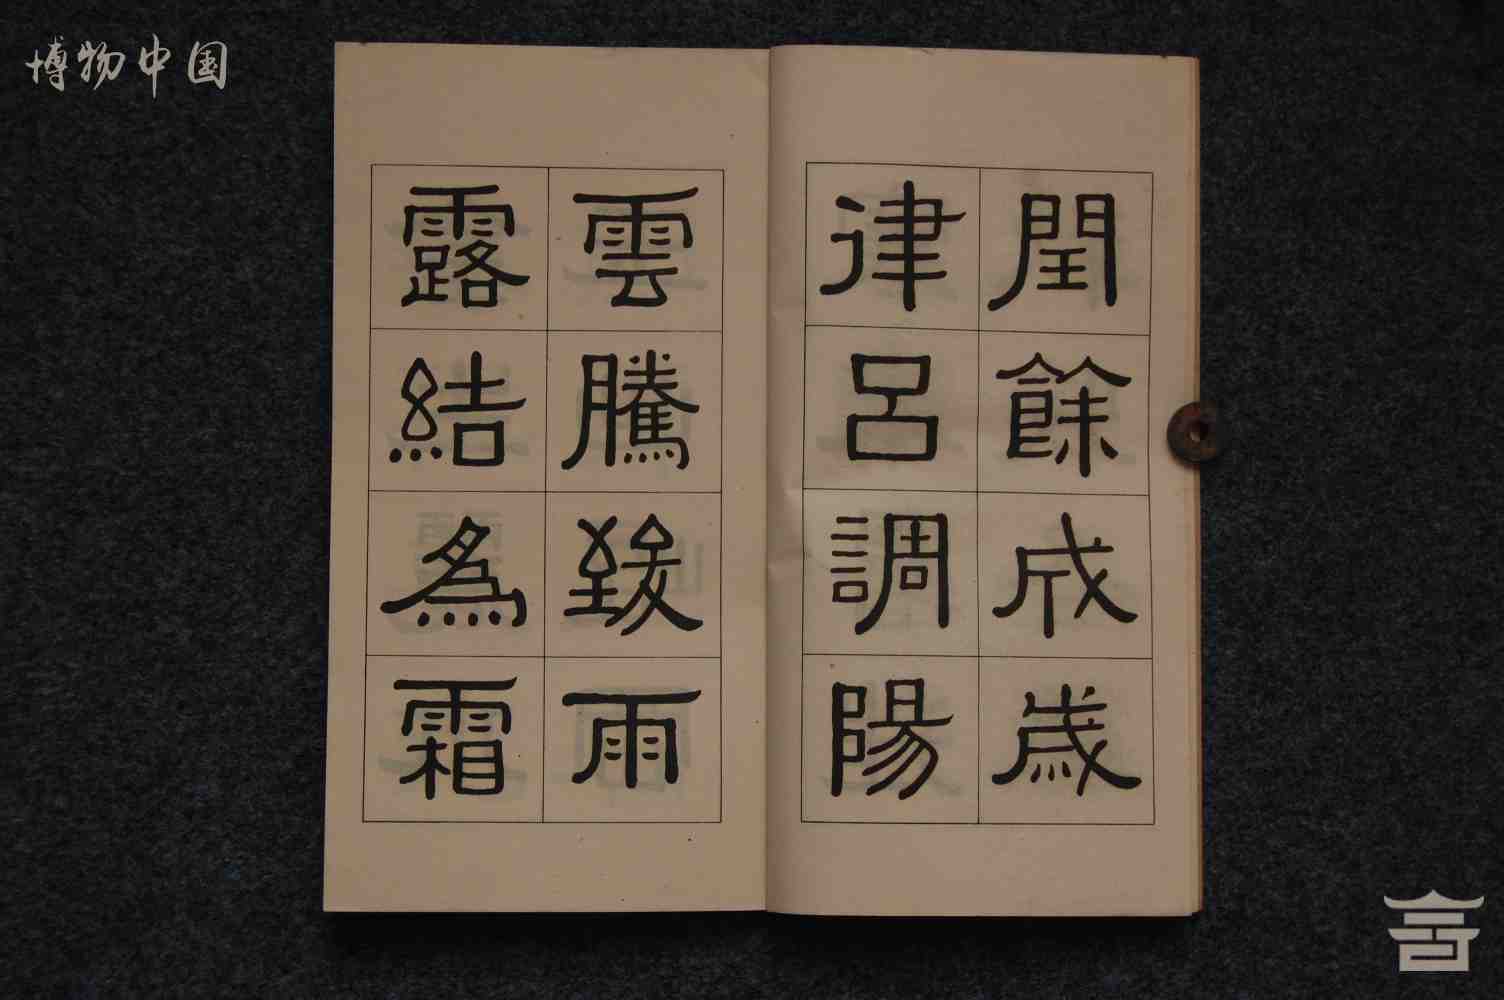 博物中国
閏餘成歲
律呂調陽
雲騰致雨
露結為霜